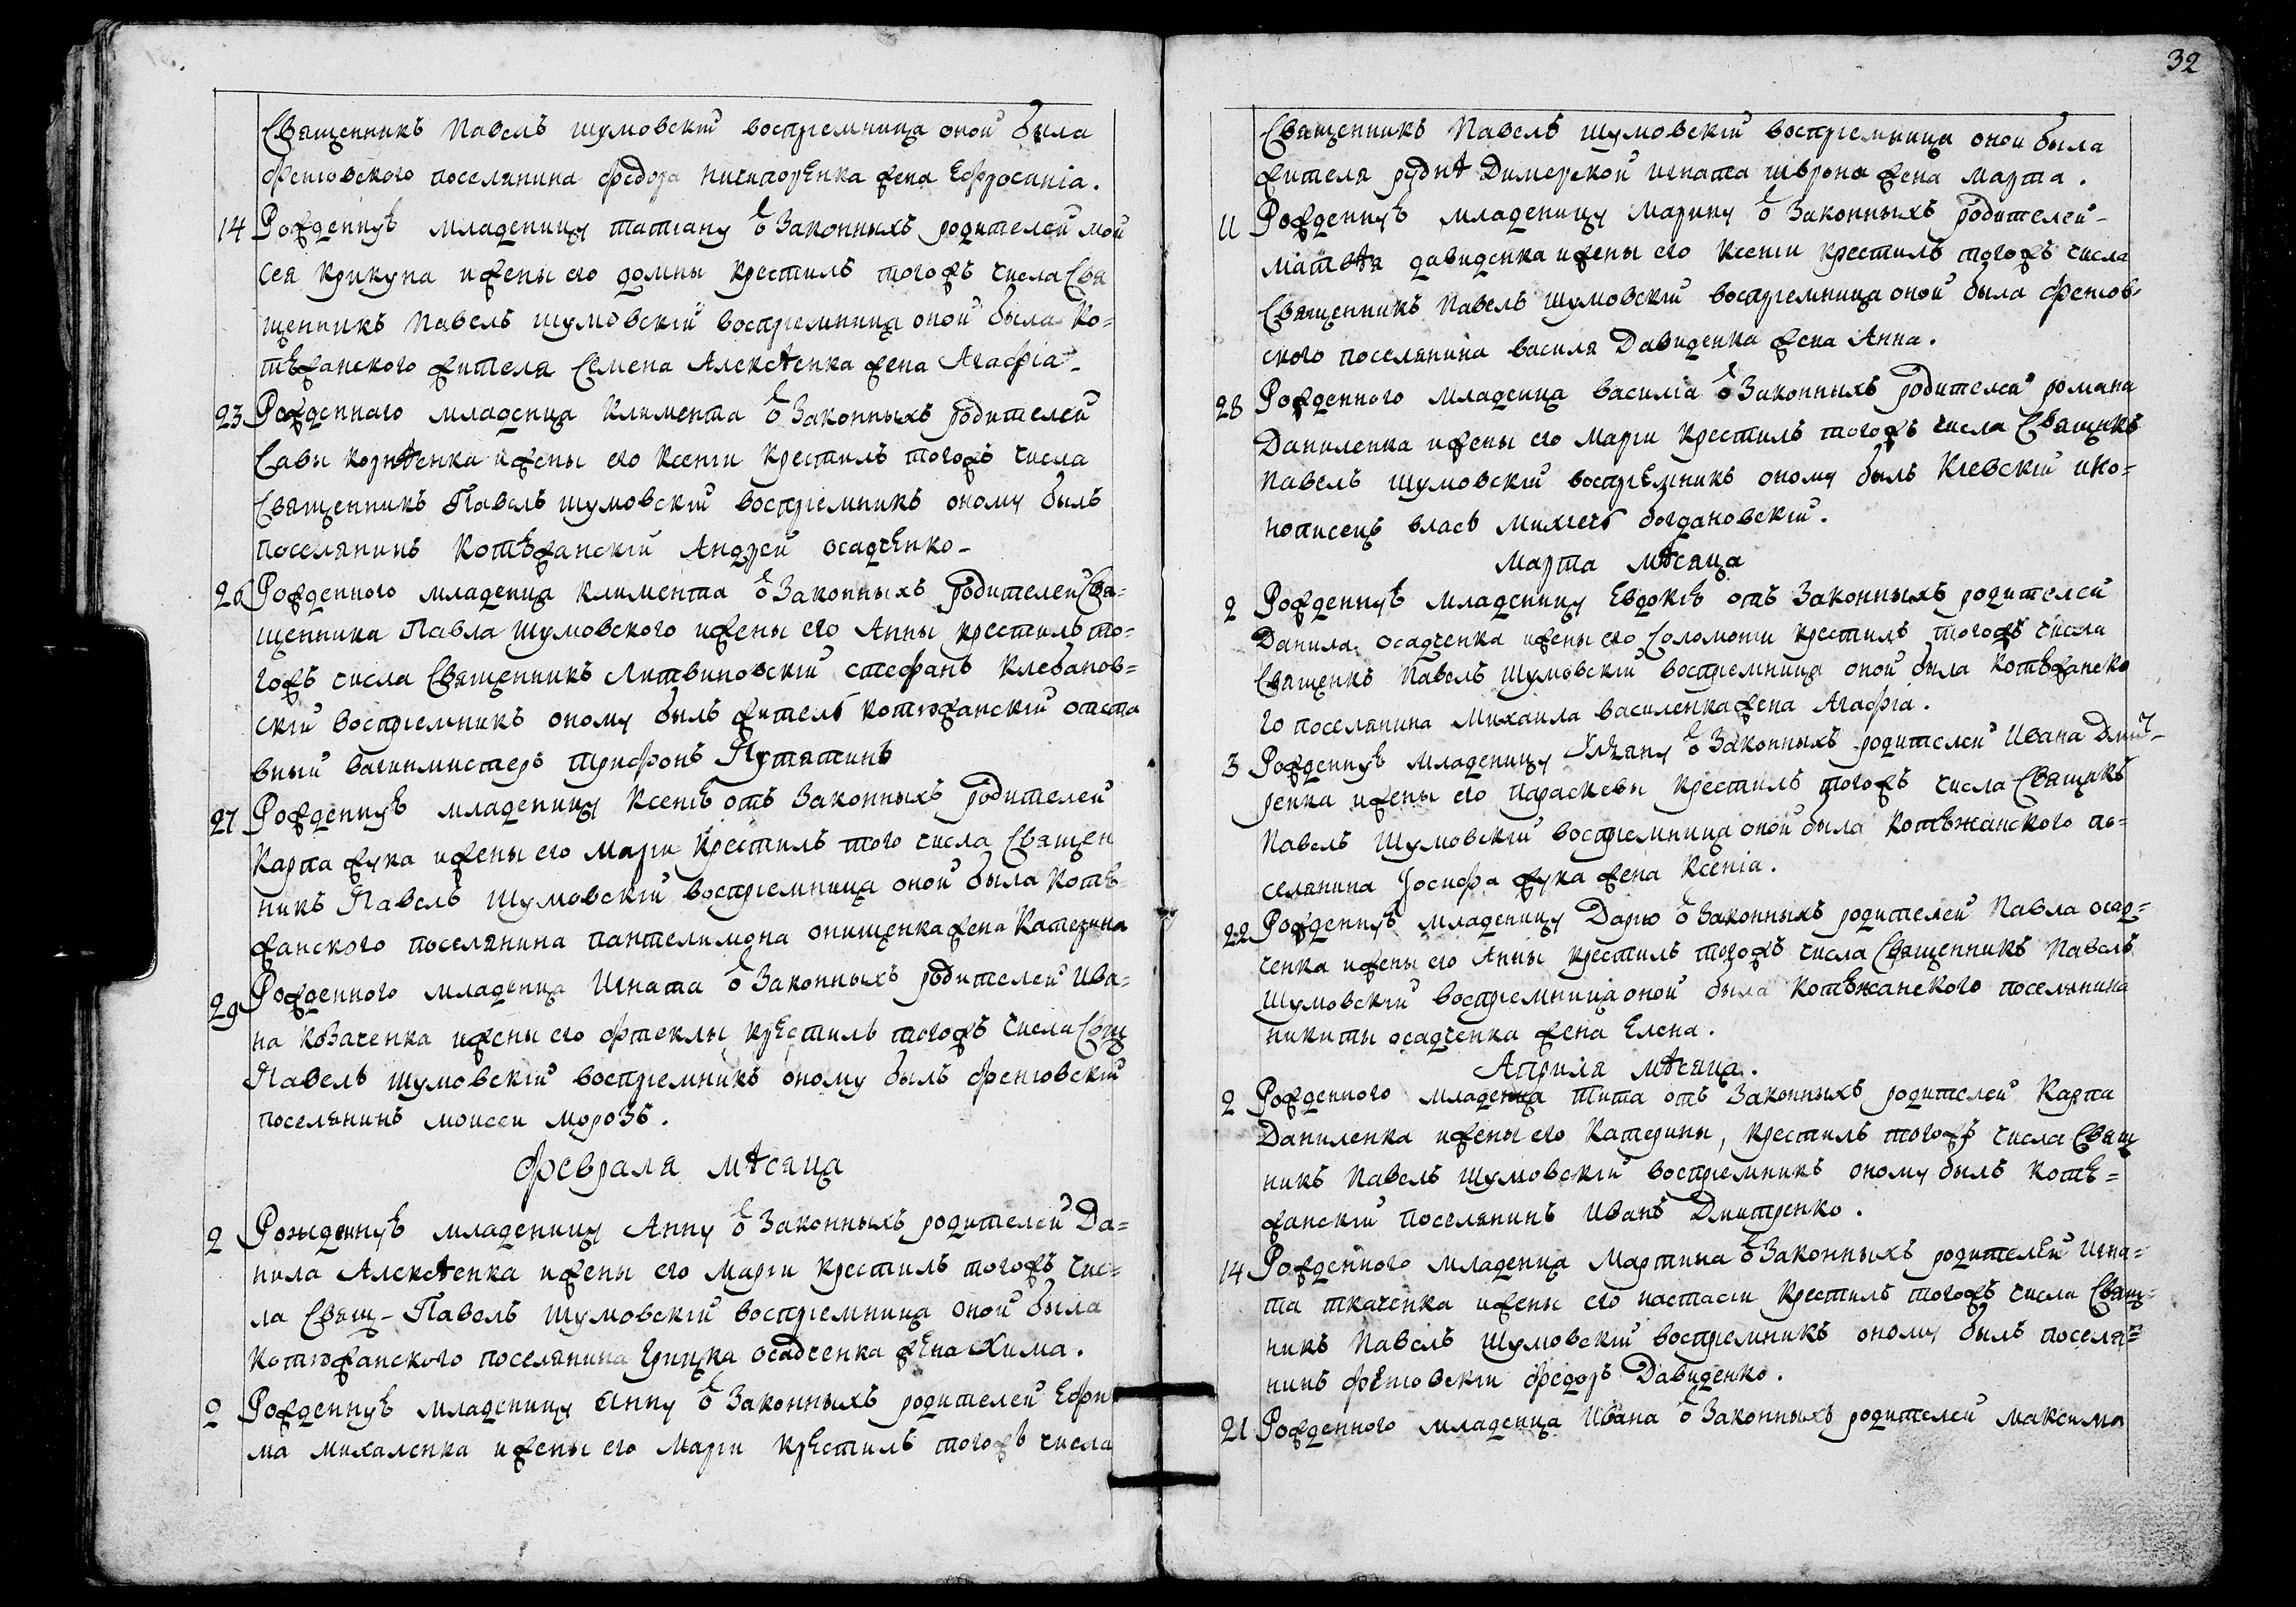 Священникъ Павелъ шумовскій воспріемница оной была
Феневского поселянина федора ничипоренка жена Ефросинія.
14 Рожденнує младеницу татіану ѿ Законныхъ родителей мой
сея Крикуна и жены его домны крестилъ тогожъ числа Свя
щенникъ Павелъ шумовскій воспріемница оной была Ко=
тѣжанского жителя Семена Алексѣенка жена Агафіа-
23 Рожденнаго младенца Климента ѿ Законныхъ родителей
Савы Корнѣенка и жены его Ксеніи крестилъ тогожъ числа
Священникъ Павелъ шумовскій воспріемникъ оному былъ
поселянинъ Котѣжанскій Андрей осадченко-
26 Рожденного младенца климента ѿ Законныхъ Родителей Свя=
щенника Павла Шумовского и жены его Анны крестилъ то=
гожъ числа Священникъ Литвиновскій стефанъ Клебанов=
скій воспріемникъ оному былъ житель котюжанскій отста
вный вахмистеръ трифонъ Путятинъ
27 Рожденнує младеницу Ксенію отъ Законныхъ Родителей
Карпа жука и жены его Маріи крестилъ того числа Священ
никъ Павелъ Шумовскій воспріемница оной была Котѣ=
жанского поселянина пантелимона онищенка жена Катерина
29 Рожденного младенца Игната ѿ Законныхъ родителей Ива=
на Козаченка и жены его фтеклы крестилъ тогожъ числа Свщ
Павелъ шумовскій воспріемникъ оному былъ феневскій
поселянинъ моисеи морозъ.
февраля мѣсяца
2 Рожденнує младеницу Анну ѿ Законныхъ родителей Да=
нила Алексѣенка и жены его Маріи крестилъ тогожъ чис=
ла Свящ- Павелъ Шумовскій воспріемница оной была
Котюжанского поселянина Грицка осадченка жена Хима.
2 Рожденнує младеницу Анну ѿ Законныхъ родителей Ефи
ма михаленка и жены его Маріи крестилъ тогожъ числа
32
Священникъ Павелъ Шумовскій воспріемница оной была
жителя рудні Димерской игната жена марта.
11 Рожденнує младеницу Марину ѿ Законныхъ родителей-
Матвѣя давиденка и жены его Ксеніи крестилъ тогожъ числа
Священникъ Павелъ Шумовскій воспріемница оной была фенев=
ского поселянина василя Давиденка жена Анна.
28 Рожденного младенца василіа ѿ Законныхъ родителей романа
Даниленка и жены его Маріи крестилъ тогожъ числа Свящнкъ
Павелъ шумовскій воспріемникъ оному былъ Кіевскій ико=
нописецъ власъ богдановскій.
Марта мѣсяца
2 Рожденнує младеницу Евдокію отъ Законныхъ родителей
Данила осадченка и жены его Соломоніи крестилъ тогожъ числа
Священкъ Павелъ Шумовскій воспріемница оной была котѣжанско
го поселянина Михаила василенка жена Агафіа.
3 Рожденнує младеницу Улляну ѿ Законныхъ родителей Ивана Дмит-
ренка и жены его параскевы крестилъ тогожъ числа Свящнкъ
Павелъ Шумовскій воспріемница оной была Котѣжанского по=
селянина Іосифа жука жена Ксенія.
22 Рожденнує младеницу Дарію ѿ Законныхъ родителей Павла осад=
ченка и жены его Анны крестилъ тогожъ числа Священникъ Павелъ
Шумовскій воспріемница оной была котѣжанского поселянина
никиты осадченка жена Елена.
Априля мѣсяца.
2 Рожденного младенца тита отъ Законныхъ родителей Карпа
Даниленка и жены его Катерины, крестилъ тогожъ числа Свящ
никъ Павелъ Шумовскій воспріемникъ оному былъ Котѣ=
жанскій поселянинъ Иванъ Дмитренко.
14 Рожденного младенца Мартина ѿ Законныхъ родителей игна=
та ткаченка и жены его настасіи крестилъ тогожъ числа Свящ=
никъ Павелъ Шумовскій воспріемникъ оному былъ поселя=
нинъ феневскіи федоръ Давиденко.
21 Рожденного младенца Ивана ѿ Законныхъ родителей максима